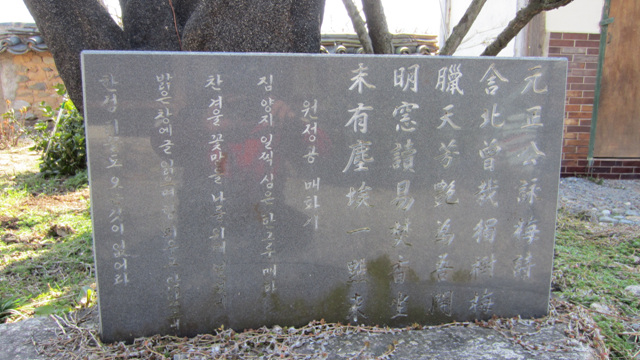 元正公詠梅詩
舍北曾栽獨樹梅
臘天芳艶為吾開
明窓讀易焚香坐
未有塵埃一點来
원정공 매화시
집 양지 일찍 심은 한 그루 매화
찬 겨울 꽃망울 나를 위해
밝은 창에 글 읽으며 향 피우고
한 점 티끌도 오는 것이 없어라